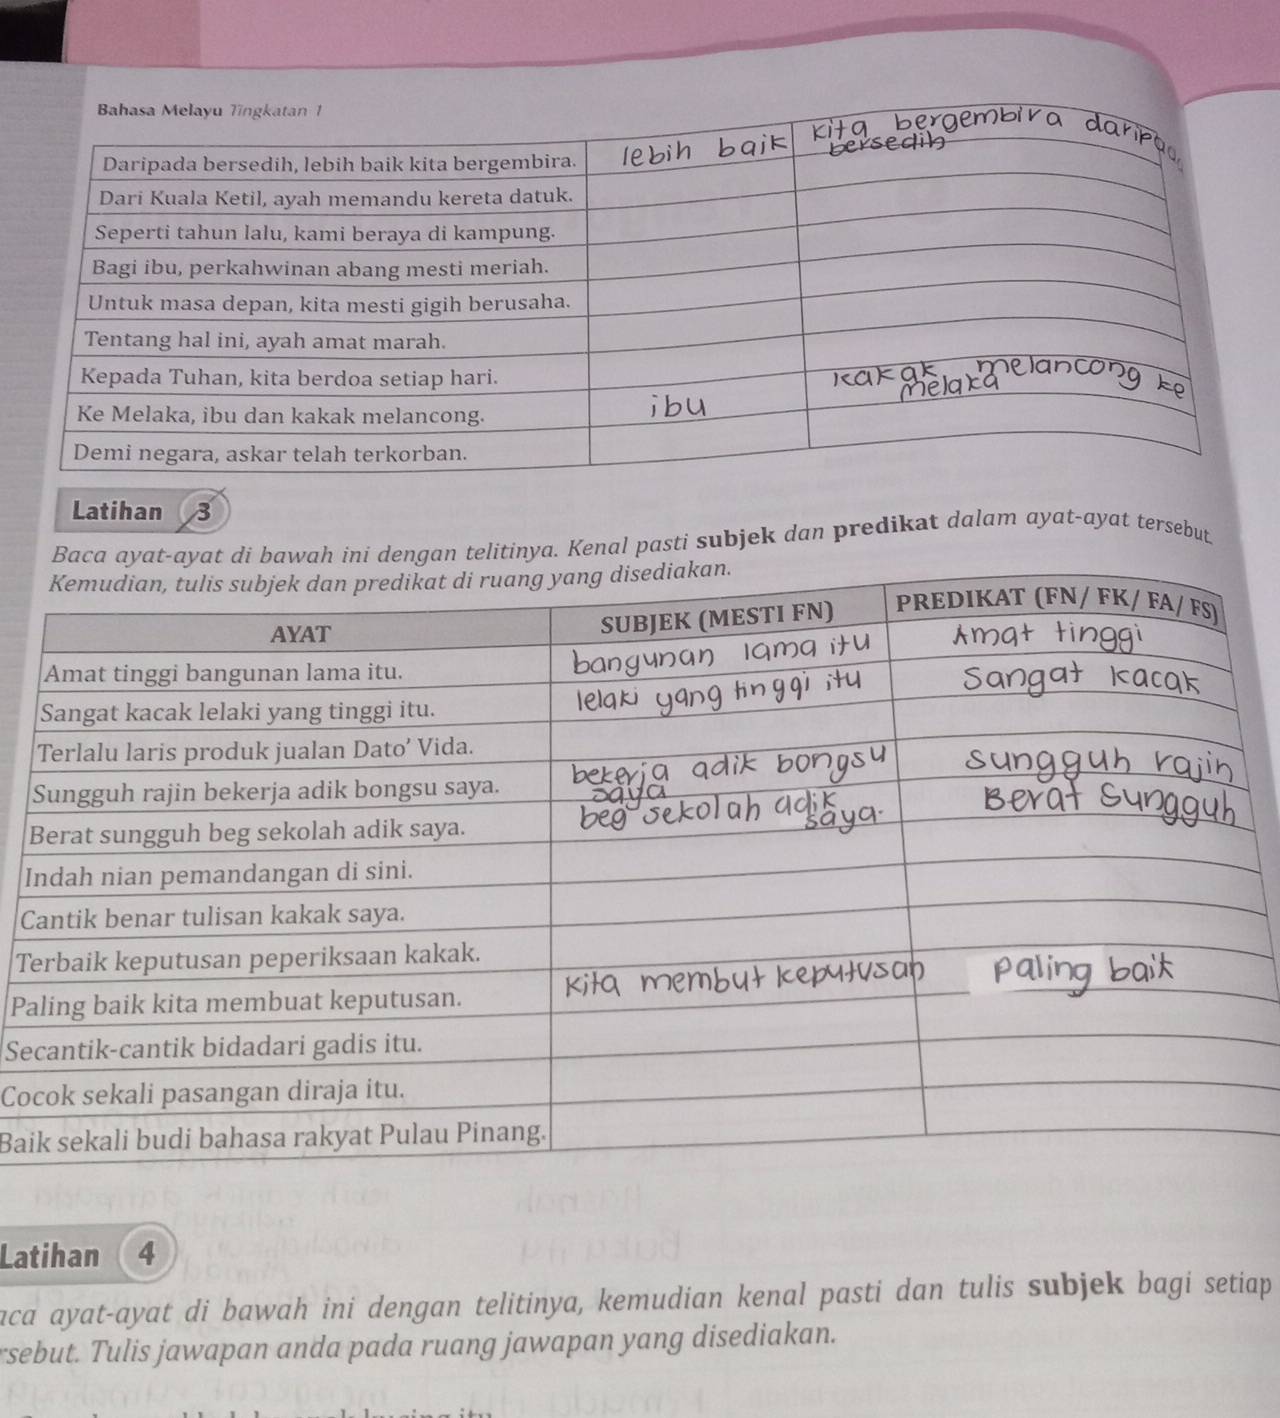 Bahasa Melayu Tingkatan 1
Daripada bersedih, lebih baik kita bergembira. lebih baik kita bergembira daripada
bersedih
Dari Kuala Ketil, ayah memandu kereta datuk.
Seperti tahun lalu, kami beraya di kampung.
Bagi ibu, perkahwinan abang mesti meriah.
Untuk masa depan, kita mesti gigih berusaha.
Tentang hal ini, ayah amat marah.
Kepada Tuhan, kita berdoa setiap hari.
Ke Melaka, ibu dan kakak melancong. ibu kakak melancong ke
melaka
Demi negara, askar telah terkorban.
Latihan 3
Baca ayat-ayat di bawah ini dengan telitinya. Kenal pasti subjek dan predikat dalam ayat-ayat tersebut.
Kemudian, tulis subjek dan predikat di ruang yang disediakan.
AYAT SUBJEK (MESTI FN) PREDIKAT (FN/ FK/ FA/ FS)
Amat tinggi bangunan lama itu. bangunan lama itu Amat tinggi
Sangat kacak lelaki yang tinggi itu. lelaki yang tinggi itu Sangat kacak
Terlalu laris produk jualan Dato' Vida.
Sungguh rajin bekerja adik bongsu saya. bekerja adik bongsu sungguh rajin
saya
Berat sungguh beg sekolah adik saya. beg sekolah adik Berat sungguh
saya.
Indah nian pemandangan di sini.
Cantik benar tulisan kakak saya.
Terbaik keputusan peperiksaan kakak.
Paling baik kita membuat keputusan. kita membut keputusan paling baik
Secantik-cantik bidadari gadis itu.
Cocok sekali pasangan diraja itu.
Baik sekali budi bahasa rakyat Pulau Pinang.
Latihan 4
aca ayat-ayat di bawah ini dengan telitinya, kemudian kenal pasti dan tulis subjek bagi setiap
rsebut. Tulis jawapan anda pada ruang jawapan yang disediakan.